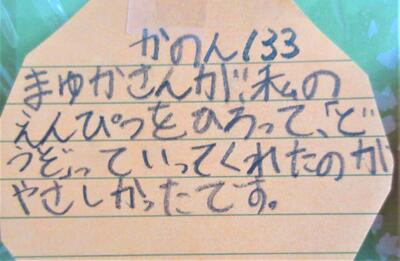 かのん133
まゆかさんが、私の
えんぴつをひろって、「ど
うぞ」っていってくれたのが
やさしかったてす。